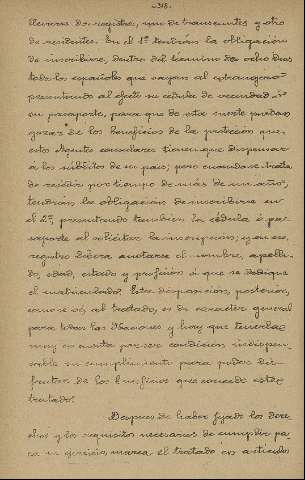 -318-
llevarse dos registros, uno de transeuntes y otro
de residentes. En el 1º tendrán la obligación
de inscribirse, dentro del término de ocho dias
todo los españoles que vayan al extrangero
presentando al efecto su cédula de vecindad ó
su pasaporte, para que de esta suerte puedan
gozar de los beneficios de la protección que
estos Agentes consulares tienen que dispensar
á los súbditos de su pais; pero cuando se trata
de residir por tiempo de más de un año,
tendrán la obligación de inscribirse en
el 2º, presentando tambien la cédula ó pa-
saporte al solicitar la inscripcion, y en ese
registro deberá anotarse el nombre, apelli-
do, edad, estado y profesión á que se dedique
el matriculado. Esta disposición, posterior,
como se vé, al tratado, es de carácter general
para todas las Naciones y hay que tenerlas
muy en cuenta por ser condición indispen-
sable su cumplimiento para poder dis-
frutar de los beneficios que concede este
tratado.
Despues de haber fijado los dere-
chos y los requisitos necesarios de cumplir pa-
ra su ejercicio, marca el tratado en articulos